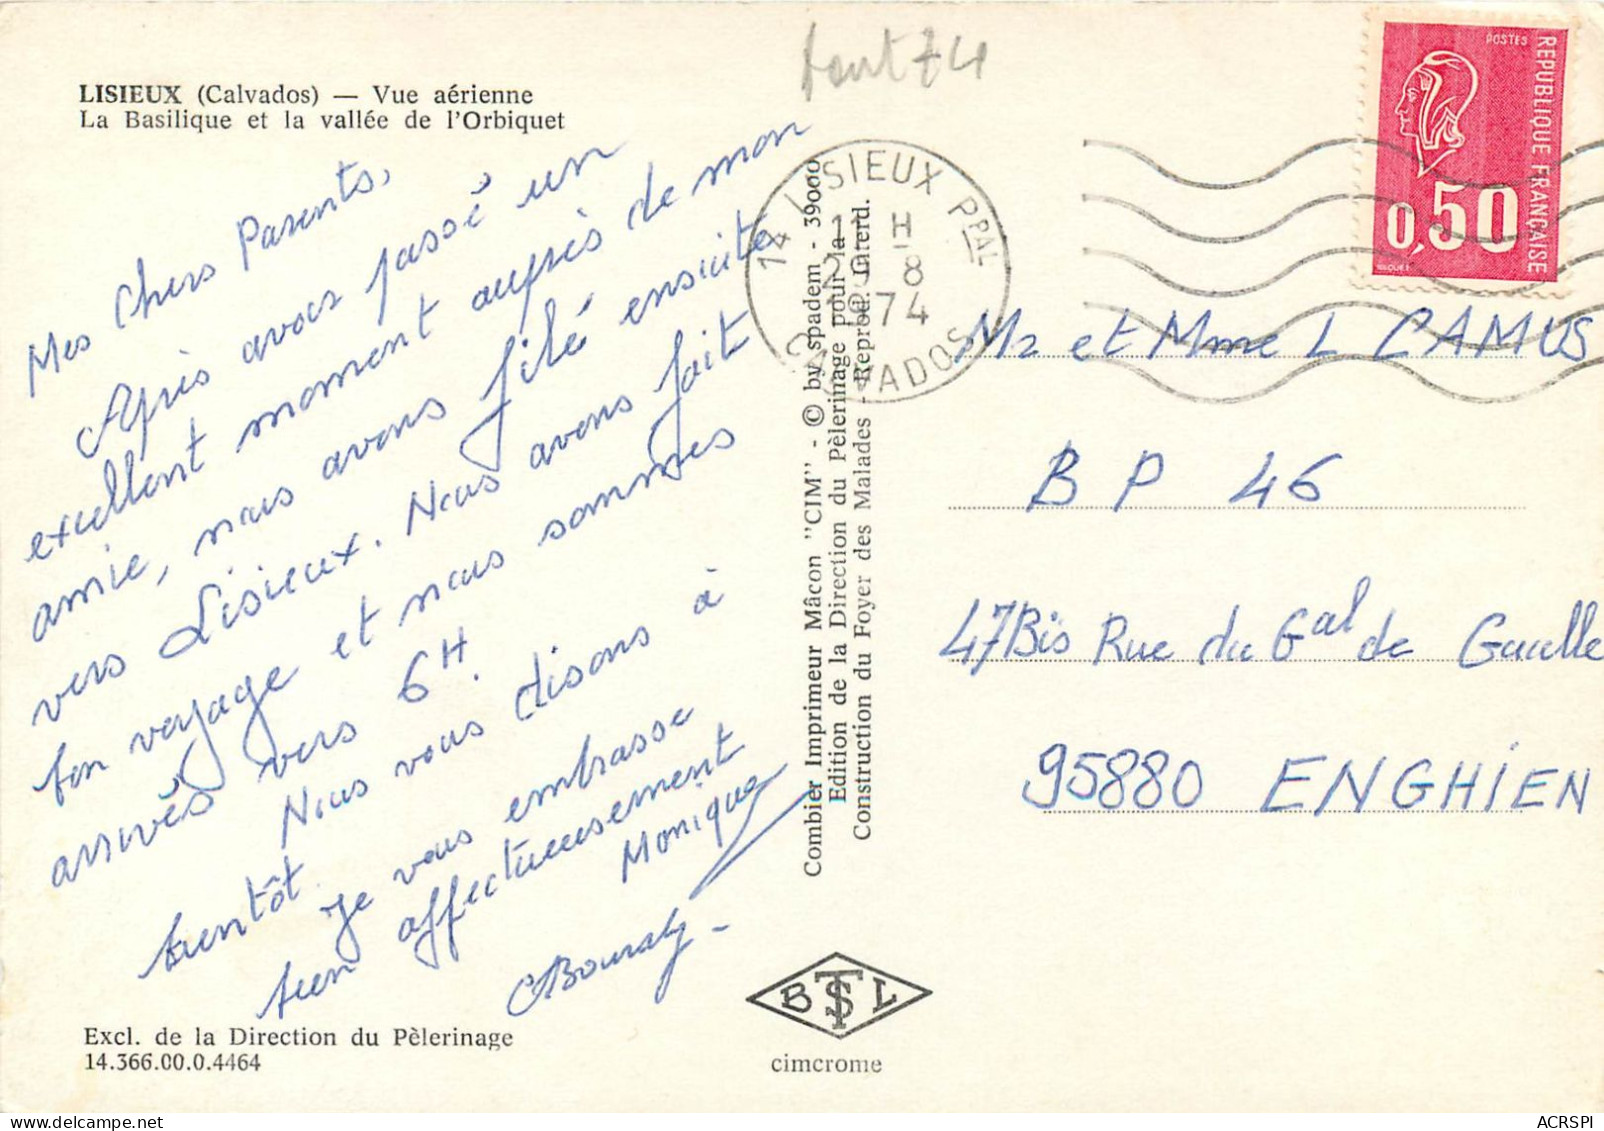 LISIEUX (Calvados) — Vue aérienne
La Basilique et la vallée de l'Orbiquet
Mes Chers Parents,
Après avoir passé un
excellent moment auprès de mon
amie, nous avons filé ensuite
vers Lisieux. Nous avons fait
bon voyage et nous sommes
arrivés vers 6H.
Nous vous disons à
bientôt.
Je vous embrasse
bien affectueusement
Monique
Excl. de la Direction du Pèlerinage
14.366.00.0.4464
Combier Imprimeur Mâcon "CIM" - © by spadem - 39000
Edition de la Direction du Pèlerinage pour la
Construction du Foyer des Malades - Reprod. Interd.
BTSL
cimcrome
août 74
14 LISIEUX PPAL
H
8
1974
CALVADOS
POSTES
REPUBLIQUE FRANÇAISE
0,50
Mr et Mme L CAMUS
BP 46
47Bis Rue du Gal de Gaulle
95880 ENGHIEN
ACRSPI